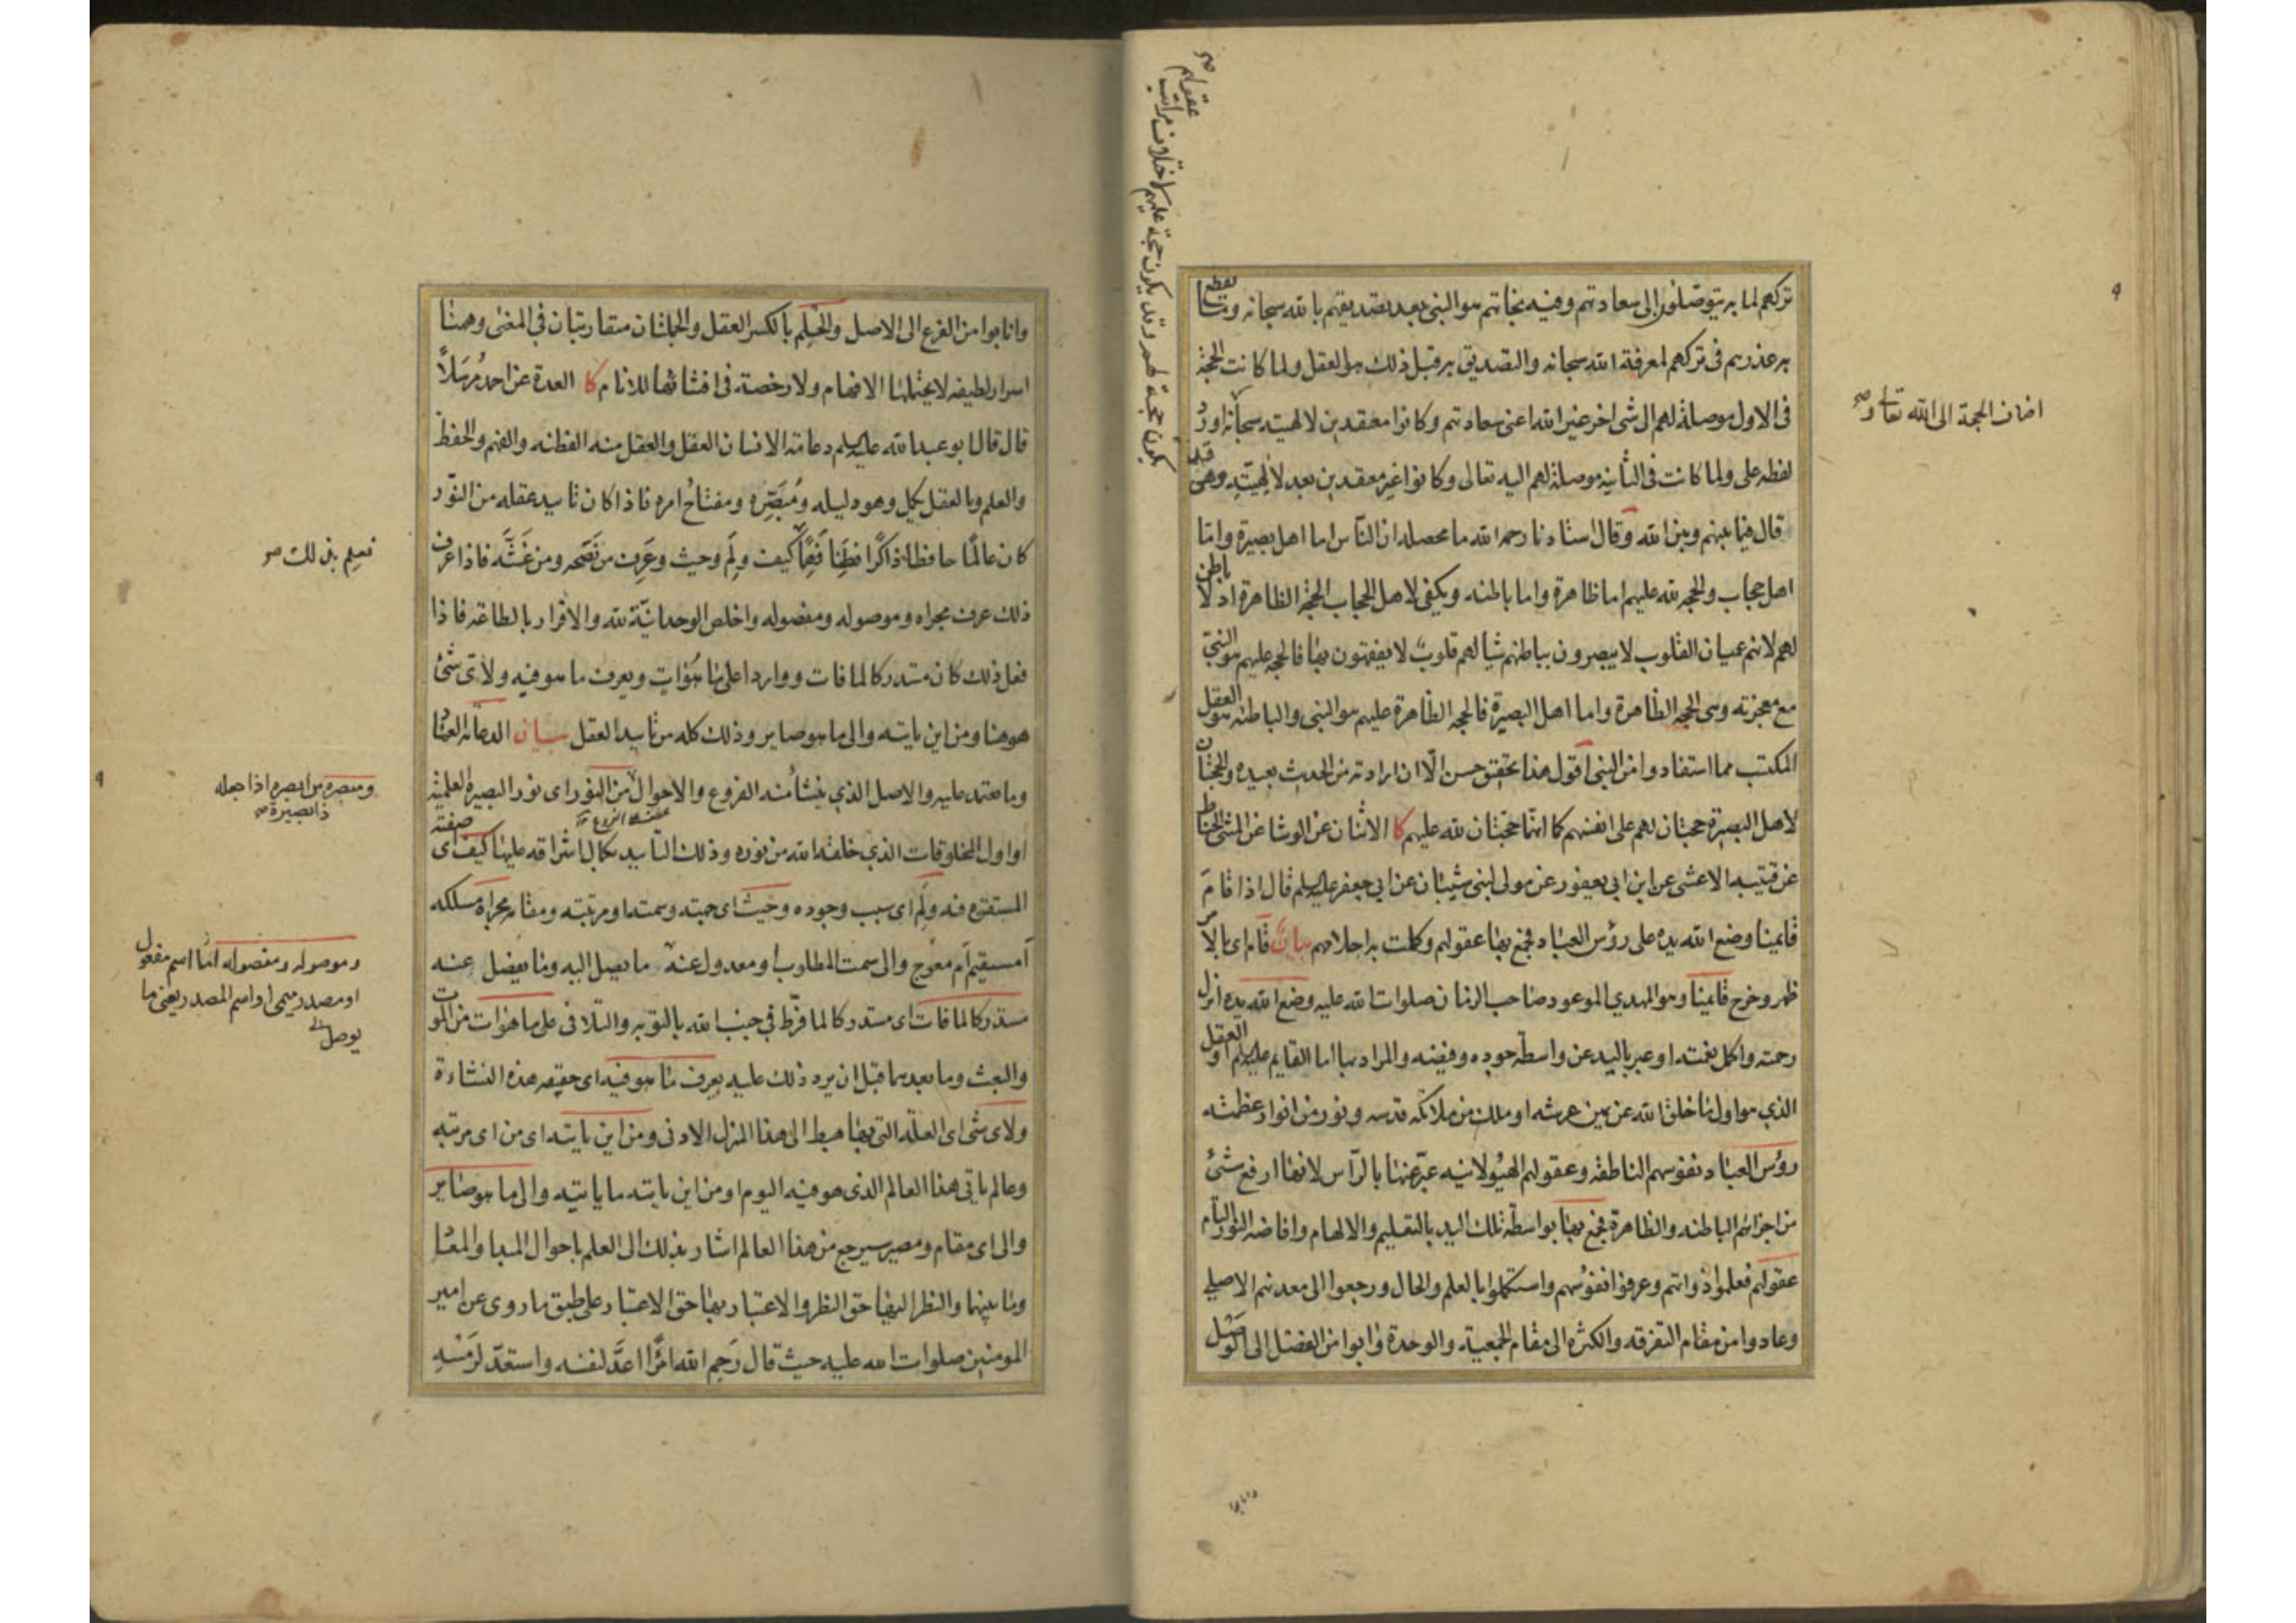 تركهم لما به يتوصلون الى سعادتهم وفيه نجاتهم هو النبى بعد تصديقهم بالله سبحانه وما يقطع
به عذرهم فى تركهم لمعرفة الله سبحانه والتصديق به قبل ذلك هو العقل ولما كانت الحجة
فى الاول موصلة لهم الى شى اخر غير الله اعنى سعادتهم وكانوا معتقدين لالهيته سبحانه اورد
لفظه على ولما كانت فى الثانية موصلة لهم اليه تعالى وكانوا غير معتقدين بعد لالهيته وهى قبلها
قال فيما بينهم وبين الله وقال استادنا رحمه الله ما محصله ان الناس اما اهل بصيرة واما
اهل حجاب والحجه لله عليهم اما ظاهرة واما باطنه ويكفى لاهل الحجاب الحجة الظاهرة اذ لا باطن
لهم لانهم عميان القلوب لا يبصرون بباطنهم شيا لهم قلوب لا يفقهون بها فالحجه عليهم هو النبى
مع معجزته وهى الحجه الظاهرة واما اهل البصيرة فالحجه الظاهرة عليهم هو النبى والباطنه هو العقل
المكتسب مما استفادوا من النبى اقول هذا تحقيق حسن الا ان ارادته من الحديث بعيده والحجتان
لاهل البصيرة حجتان لهم على انفسهم كما انهما حجتان لله عليهم كا الاثنان عن الوشا عن المثنى الحناط
عن قتيبه الاعشى عن ابن ابى يعفور عن مولى لبنى شيبان عن ابى جعفر عليه السلم قال اذا قام
قايمنا وضع الله يده على رؤس العباد فجمع بها عقولهم وكملت به احلامهم بيان قام اى بالامر
ظهر وخرج قايمنا وهو المهدى الموعود صاحب الزمان صلوات الله عليه وضع الله يده انزل
رحمته واكمل نعمته او عبر باليد عن واسطة جوده وفيضه والمراد بها اما القايم عليه السلم او العقل
الذى هو اول ما خلق الله عن يمين عرشه او ملك من ملائكه قدسه ونور من انوار عظمته
رؤس العباد نفوسهم الناطقه وعقولهم الهيولانيه عبر عنها بالراس لانها ارفع شئ
من اجزائهم الباطنه والظاهرة فجمع بها بواسطة تلك اليد بالتعليم والالهام وافاضه النور التام
عقولهم فعلموا ذواتهم وعرفوا نفوسهم واستكملوا بالعلم والحال ورجعوا الى معدنهم الاصلى
وعادوا من مقام التفرقه والكثرة الى مقام الجمعية والوحدة وابوا من الفصل الى الوصل
اضاف الحجة الى الله تعالى و صح
يكون حجة لهم وقد يكون حجة عليهم لاختلاف مراتب
عقولهم صح
وانابوا من الفرع الى الاصل والحلم بالكسر العقل والجملتان متقاربتان فى المعنى وههنا
اسرار لطيفه لا يحتملها الافهام ولا رخصة فى افشائها للانام كا العدة عن احمد مرسلا
قال قال ابو عبد الله عليه السلم دعامة الانسان العقل والعقل منه الفطنه والفهم والحفظ
والعلم وبالعقل يكمل وهو دليله ومبصره ومفتاح امره فاذا كان تاييد عقله من النور
كان عالما حافظا ذاكرا فطنا فهما كيف ولم وحيث وعرف من نصحه ومن غشه فاذا عرف
ذلك عرف مجراه وموصوله ومفصوله واخلص الوحدانية لله والاقرار بالطاعة فاذا
فعل ذلك كان مستدركا لما فات وواردا على ما هو آت ويعرف ما هو فيه ولاى شئ
هو ههنا ومن اين ياتيه والى ما هو صاير وذلك كله من تاييد العقل بيان الدعامة العماد
وما يعتمد عليه والاصل الذى ينشأ منه الفروع والاحوال من النور اى نور البصيرة العلمية
او اول المخلوقات الذى خلقه الله من نوره وذلك التاييد بكمال اشراقه عليها كيف اى صفته
المستقره فيه ولم اى سبب وجوده وحيث اى جهته وسمته او مرتبته ومقامه مجراه مسلكه
أمستقيم أم معوج والى سمت المطلوب او معدول عنه ما يصل اليه وما يفصل عنه
مستدركا لما فات اى مستدركا لما فرط فى جنب الله بالتوبه والتلافى على ما هو آت من الموت
والبعث وما بعدهما قبل ان يرد ذلك عليه يعرف ما هو فيه اى حقيقه هذه النشاءة
ولاى شى اى العلة التى بها هبط الى هذا المنزل الادنى ومن اين ياتيه اى من اى مرتبه
وعالم ياتى هذا العالم الذى هو فيه اليوم او من اين ياتيه ما ياتيه والى ما هو صاير
والى اى مقام ومصير سيرجع من هذا العالم اشار بذلك الى العلم باحوال المبدا والمعاد
وما بينهما والنظر اليها حق النظر والاعتبار بها حق الاعتبار على طبق ما روى عن امير
المومنين صلوات الله عليه حيث قال رحم الله امرا اعد لنفسه واستعد لرمسه
فعلم بذلك صح
ومبصره من ابصره اذا جعله
ذا بصيرة
وموصوله ومفصوله اما اسم مفعول
او مصدر ميمى او اسم المصدر يعنى ما
يوصل اليه
٩